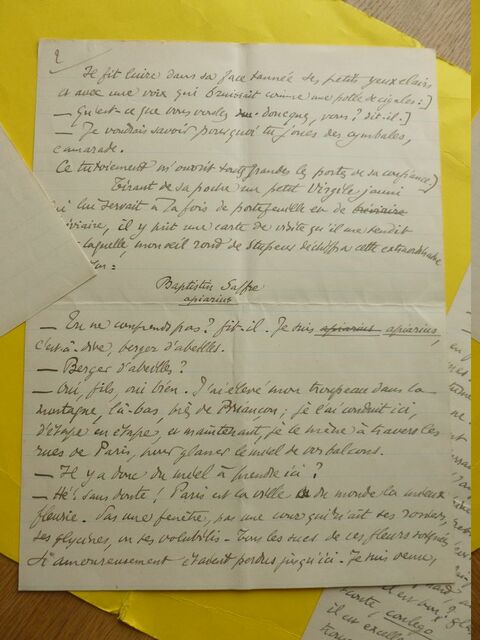 2
Il fit luire dans sa face tannée ses petits yeux clairs
et avec une voix qui bruissait comme une poêlée de cigales :]
— Qu'est-ce que vous voulez donc, vous ? dit-il.]
— Je voudrais savoir pourquoi tu joues des cymbales,
camarade.
Ce tutoiement m'ouvrit toutes grandes les portes de sa confiance.]
Tirant de sa poche un petit Virgile jauni
qui lui servait à la fois de portefeuille et de bréviaire
bréviaire, il y prit une carte de visite qu'il me tendit
laquelle, mon œil rond de stupeur déchiffra cette extraordinaire
Baptistin Saffre
apiarius
— Tu ne comprends pas ? fit-il. Je suis apiarius apiarius,
c'est-à-dire, berger d'abeilles.
— Berger d'abeilles ?
— Oui, fils, oui bien. J'ai élevé mon troupeau dans la
montagne, là-bas, près de Briançon ; je l'ai conduit ici,
d'étape en étape, et maintenant, je le mène à travers les
rues de Paris, pour glaner le miel de vos balcons.
— Il y a donc du miel à prendre ici ?
— Hé ! sans doute ! Paris est la ville du monde la mieux
fleurie. Pas une fenêtre, pas une cour qui n'ait ses rosiers,
ses glycines, ou ses volubilis. Tous les sucs de ces fleurs soignées
si amoureusement étaient perdus jusqu'ici. Je suis venu,